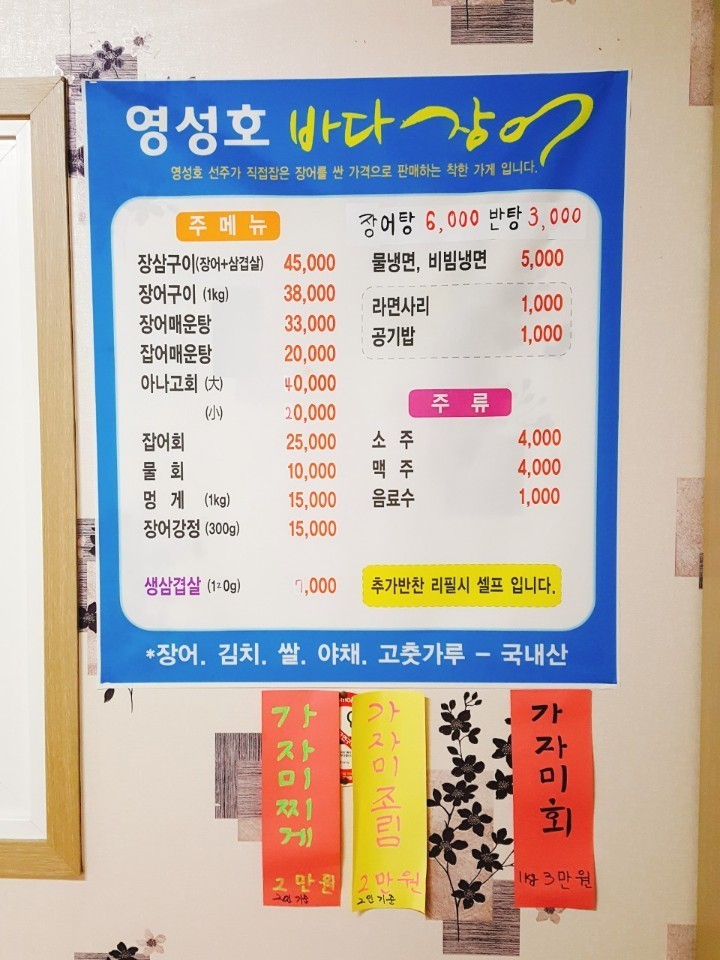 영성호 바다장어
영성호 선주가 직접잡은 장어를 싼 가격으로 판매하는 착한 가게 입니다.
주 메 뉴
장삼구이(장어+삼겹살) 45,000
장어구이 (1kg) 38,000
장어매운탕 33,000
잡어매운탕 20,000
아나고회 (大) 40,000
(小) 20,000
잡어회 25,000
물 회 10,000
멍 게 (1kg) 15,000
장어강정 (300g) 15,000
생삼겹살 (120g) 7,000
장어탕 6,000 반탕 3,000
물냉면, 비빔냉면 5,000
라면사리 1,000
공기밥 1,000
주 류
소 주 4,000
맥 주 4,000
음료수 1,000
추가반찬 리필시 셀프 입니다.
*장어. 김치. 쌀. 야채. 고춧가루 - 국내산
가자미찌게
2만원
2인 기준
가자미조림
2만원
2인 기준
가자미회
1kg 3만원